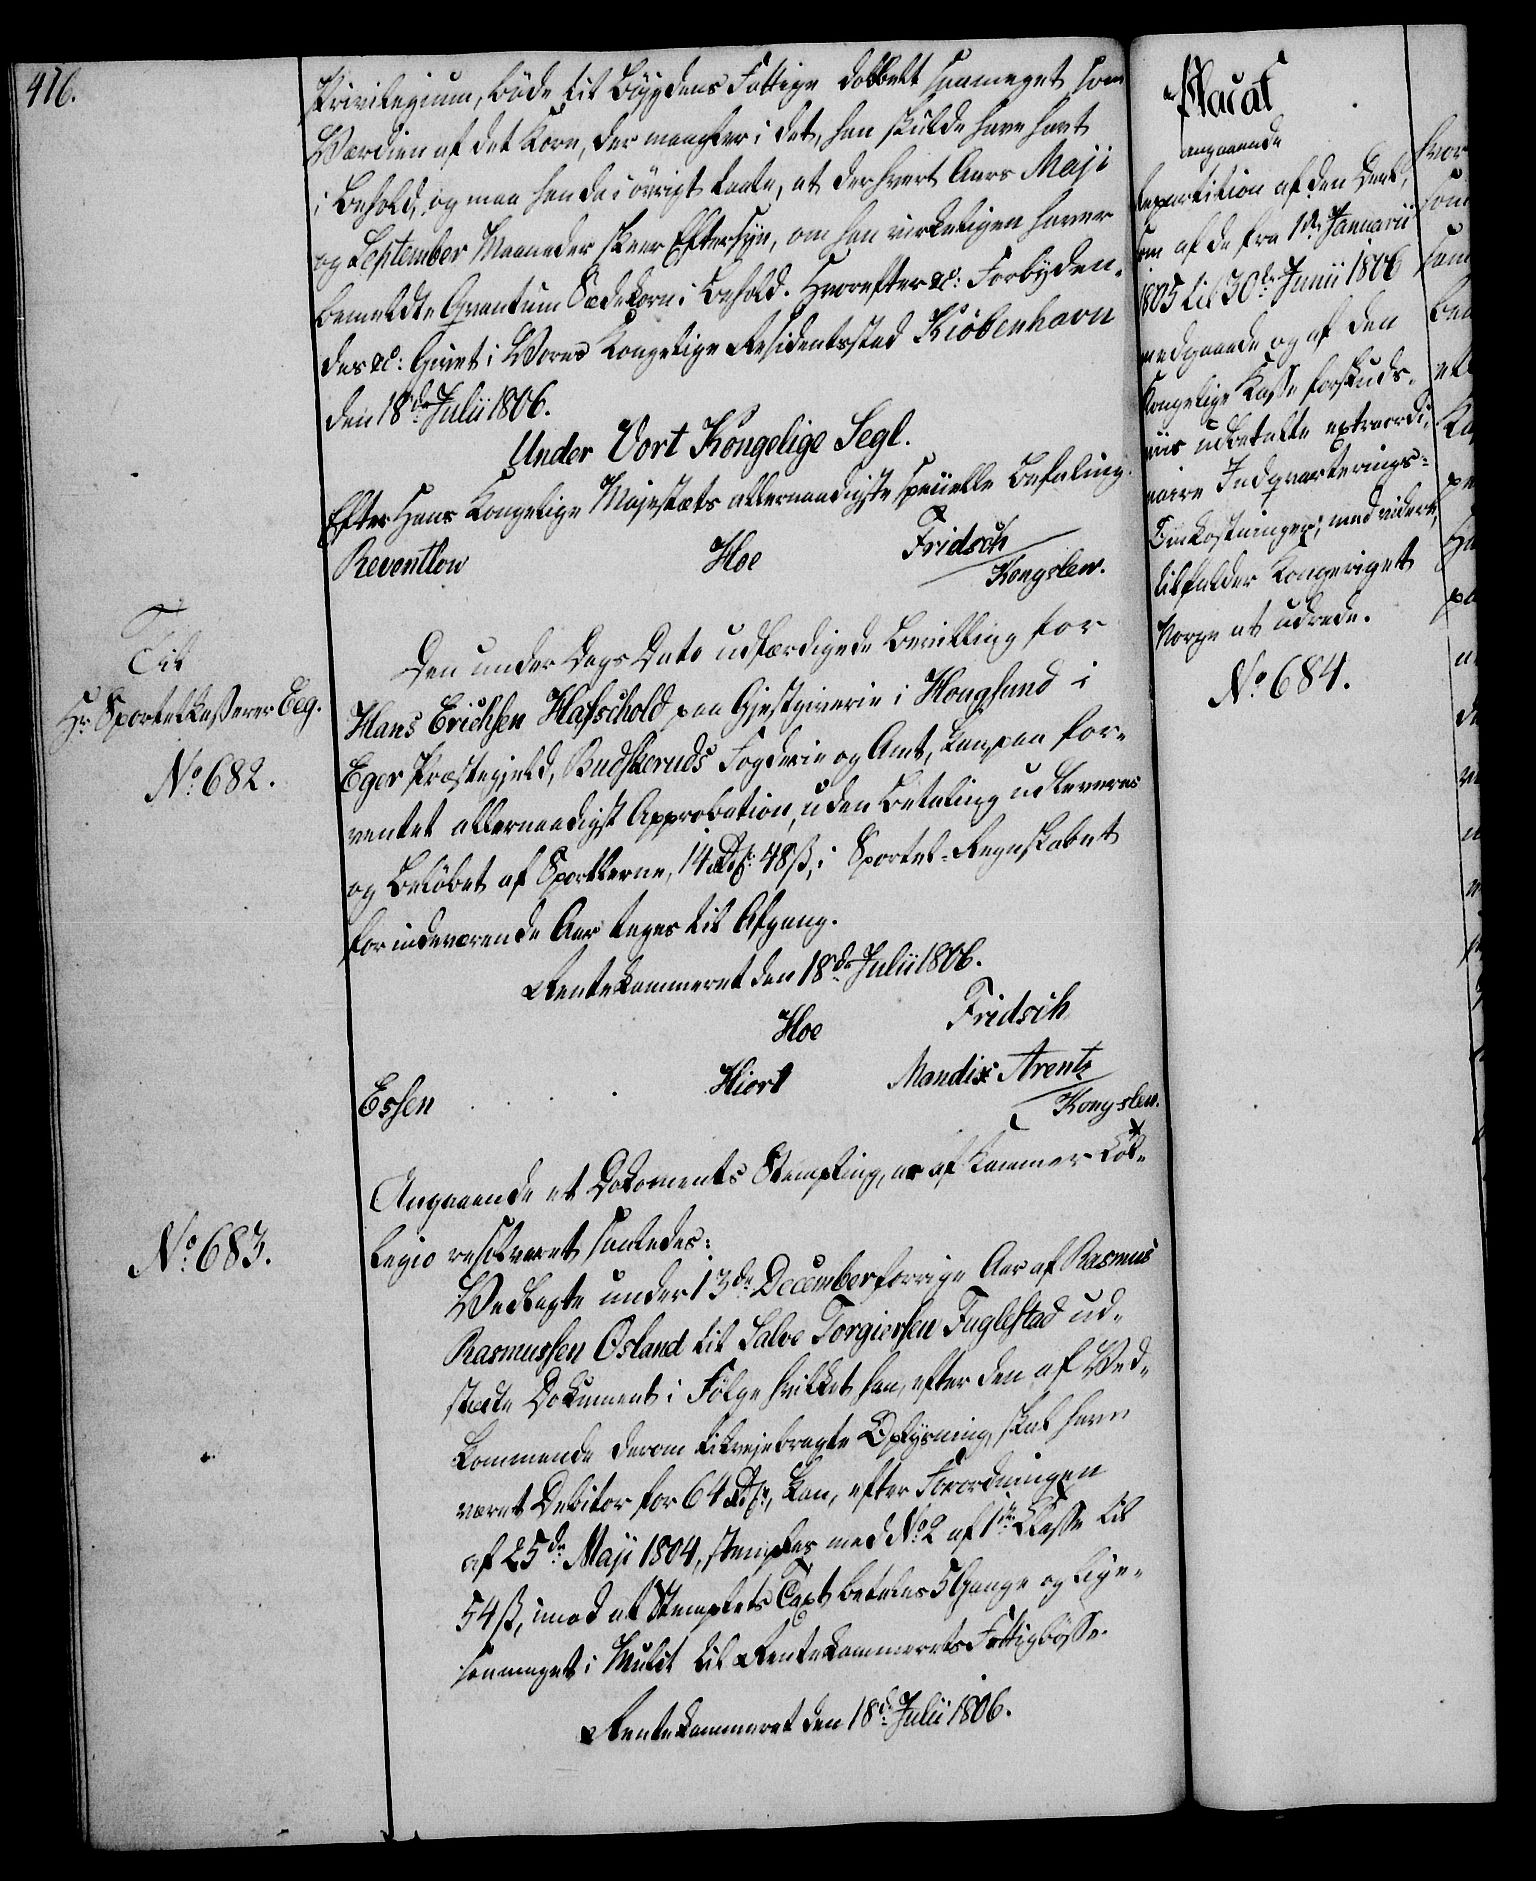 416.
Privilegium, bøde til Bÿgdens Fattige dobbelt saameget som
Værdien af det Korn, der mangler i det, han skulde have havt
i Behold, og maa han da i övrigt taale, at der hvert Aars Maji
og September Maaneder skeer Eftersÿn, om han virkeligen haver
bemeldte Qvantum Sædekorn i Behold. Hvorefter &c: Forbÿden-
des &c: Givet i Vores Kongelige Residentsstad Kiöbenhavn
den 18de Julii 1806.
Under Vort Kongelige Segl.
Efter Hans Kongelige Majestæts allernaadigste specielle Befaling.
Reventlow Hoe Fridsch
Kongslew.
Til
Hr. Sportelkasserer Eeg.
No. 682.
Den under Dags Dato udfærdigede Bevilling for
Hans Erichsen Hafschold paa Gjestgiverie i Hougsund i
Eger Præstegjeld, Budskeruds Fogderie og Amt, kan, paa for-
ventet allernaadigst Approbation, uden Betaling udleveres
og Belöbet af Sportlerne, 14 Rdr. 48 ß, i Sportel-Regnskabet
for indeværende Aar tages til Afgang.
Rentekammeret den 18de Julii 1806.
Hoe Fridsch
Essen Hiort Mandix Arentz
Kongslew.
No. 683.
Angaaende et Dokoments Stempling, er af Kammer Col-
legio resolveret saaledes:
Vedlagte under 13de December forrige Aar af Rasmus
Rasmussen Osland til Salve Torgiersen Fuglestad ud-
stædte Dokument i Fölge hvilket han, efter den af Ved-
kommende derom tilvejebragte Oplÿsning, skal have
været Debitor for 64 Rdr., kan, efter Forordningen
af 25de Maji 1804, stemples med No. 2 af 1ste Classe til
54 ß, imod at Stemplets Taxt betales 5 Gange og lige-
saameget i Mulct til Rentekammerets Fattigbösse.
Rentekammeret den 18de Julii 1806.
Placat
angaaende
Repartition af den Deel,
som af de fra 1ste Januarii
1805 til 30de Junii 1806
medgaaede og af den
Kongelige Kasse forskuds-
viis udbetalte extraordi-
naire Indqvarterings-
Omkostninger, med videre,
tilfalder Kongeriget
Norge at udrede.
No. 684.